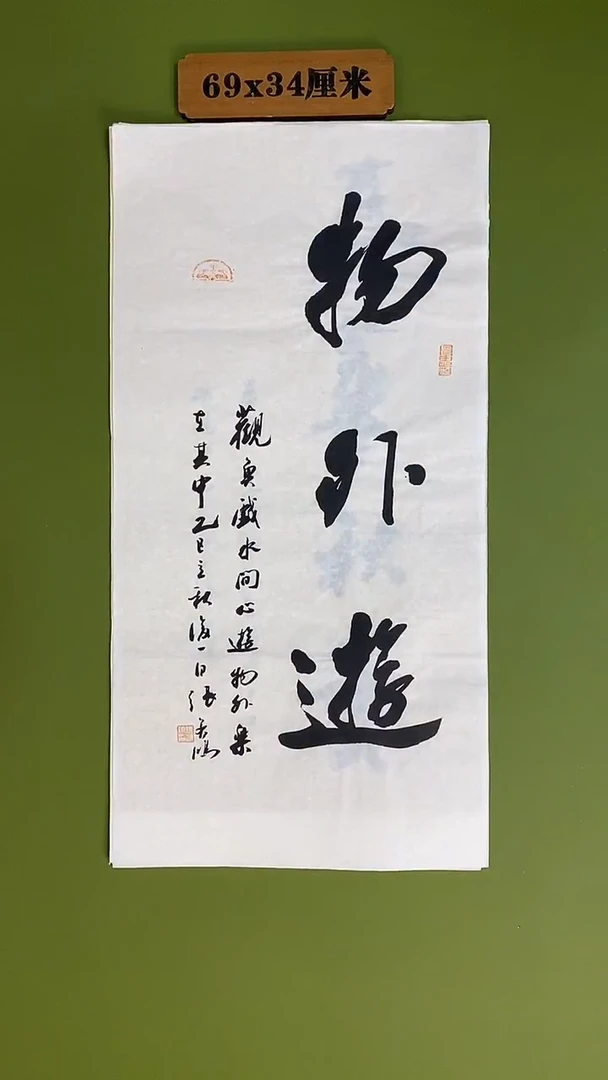 69x34厘米
物外遊
觀魚戲水間心遊物外樂
在其中乙巳立秋後一日張